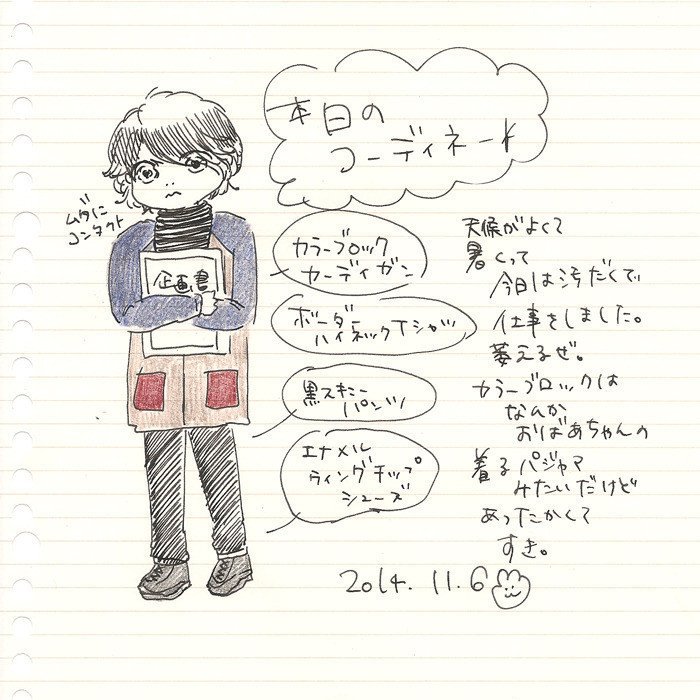 本日の
コーディネート
ムダに
コンタクト
企画書
カラーブロック
カーディガン
ボーダー
ハイネックTシャツ
黒スキニー
パンツ
エナメル
ウィングチップ
シューズ
天候がよくて
暑くって
今日は汚だくで
仕事をしました。
萎えるぜ。
カラーブロックは
なんか
おばあちゃんの
着るパジャマ
みたいだけど
あったかくて
すき。
2014.11.6